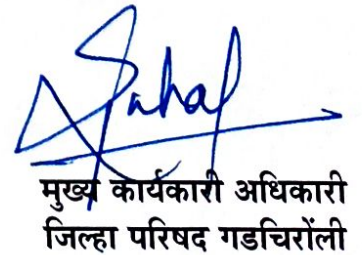 मुख्य कार्यकारी अधिकारी
जिल्हा परिषद गडचिरोंली